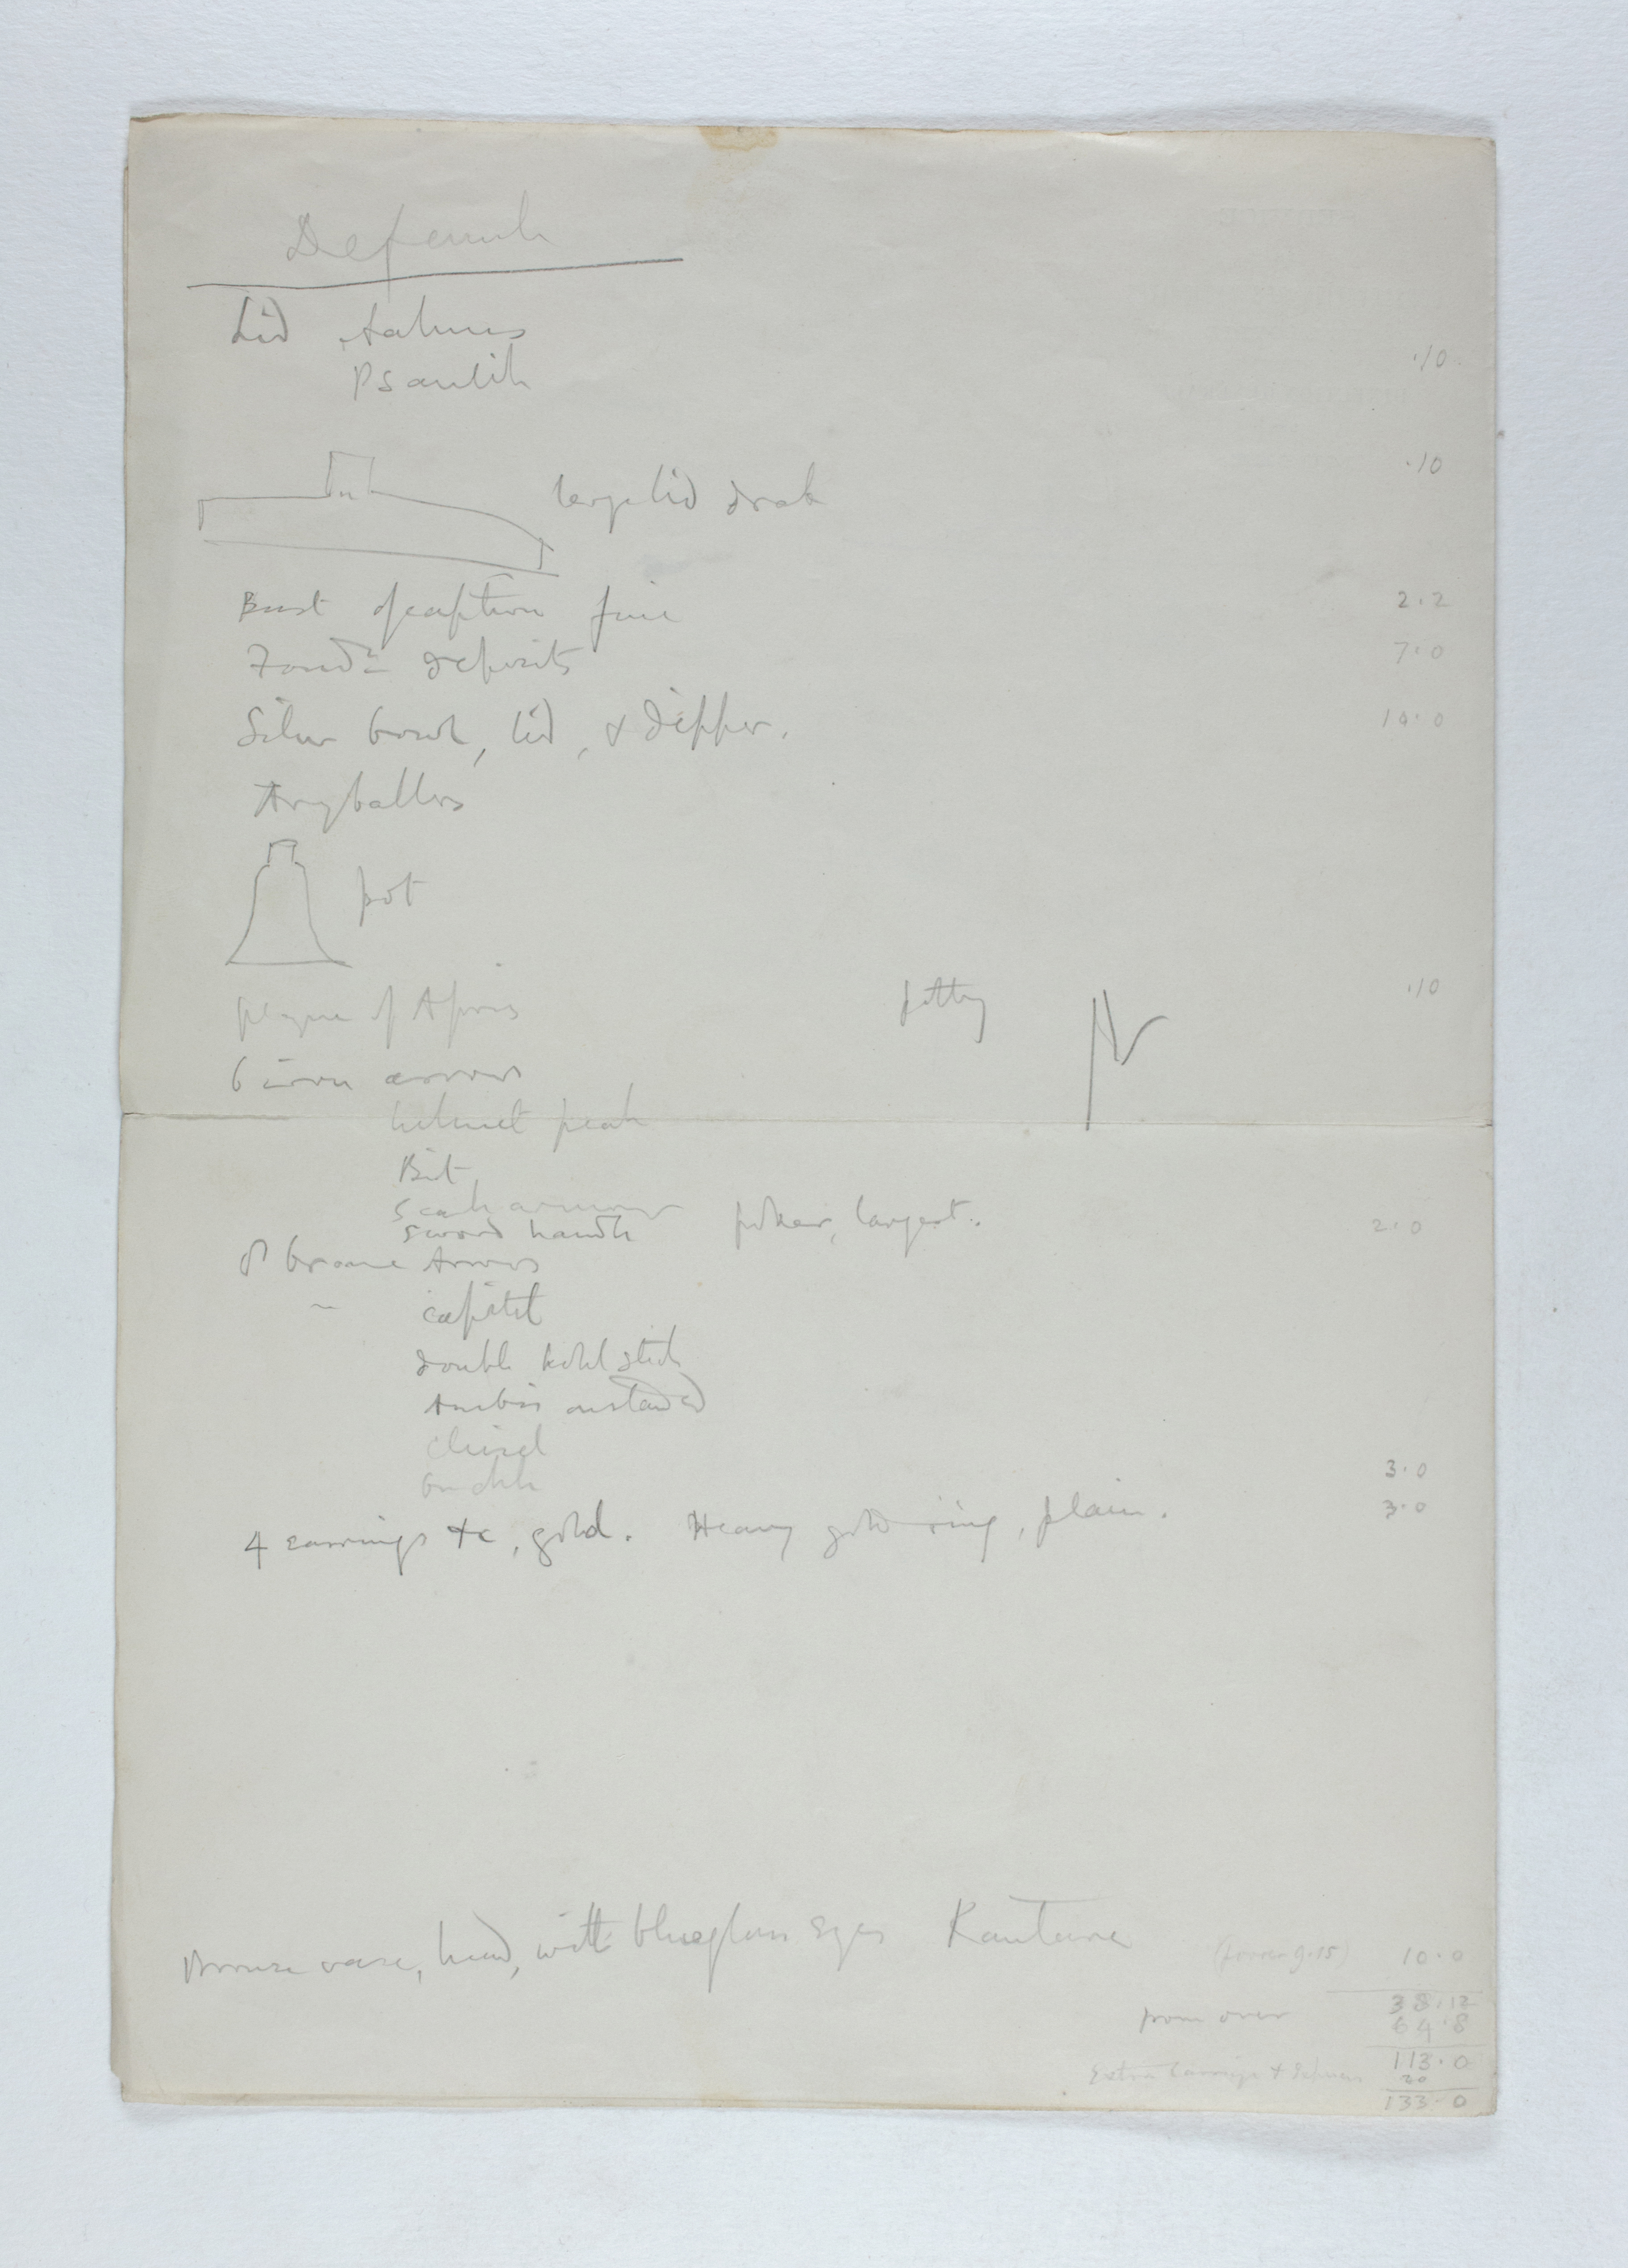 Defenneh
Lid Aahmes ·10
Psamtik
large lid drab ·10
Bust of captive fine 2·2
Foundn deposits 7·0
Silver bowl, lid, & dipper. 10·0
Aryballos
pot
plaque of Apries pottery N ·10
6 iron arrows
helmet peak
Bit
scale armour
sword handle poker, largest. 2·0
8 bronze Arrows
" capital
double kohl stick
Anubis on standard
chisel
buckle 3·0
4 earrings &c, gold. Heavy gold ring, plain. 3·0
Bronze vase, head, with blue glass eyes 10·0
38·12
from over 64·8
113·0
Extra Carriage & 20
133·0